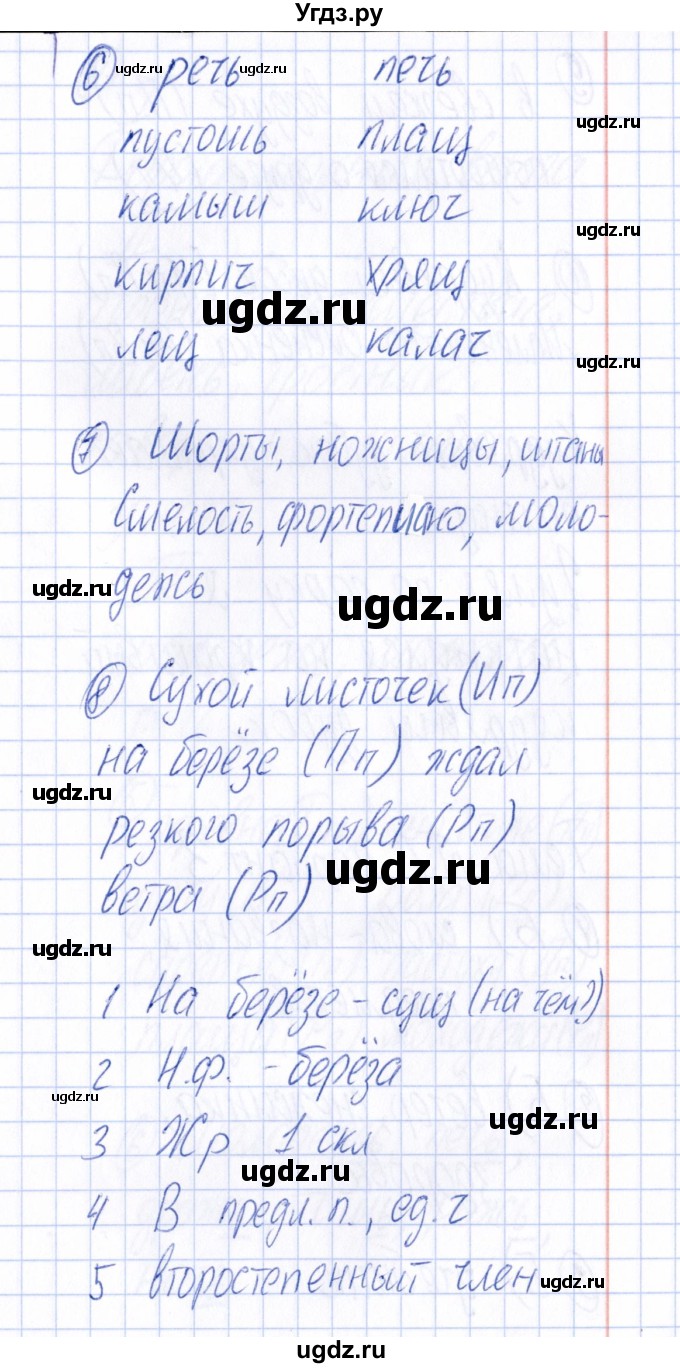 Угдз.ру
6 ugdz.ru речь ugdz.ru печь
ugdz.ru
пустошь плащ
камыш ключ
ugdz.ru
кирпич хрящ
ugdz.ru
лещ калач
ugdz.ru
7 Шорты, ножницы, штаны
Смелость, фортепиано, моло-
ugdz.ru дежь ugdz.ru
8 Сухой листочек (Ип)
на берёзе (Пп) ждал
ugdz.ru
резкого порыва (Рп)
ugdz.ru
ветра (Рп)
ugdz.ru
1 На берёзе - сущ (на чём?)
2 Н.ф. - берёза
ugdz.ru
ugdz.ru
3 Жр 1 скл
ugdz.ru
4 В предл. п., ед. ч
5 второстепенный член ugdz.ru
ugdz.ru